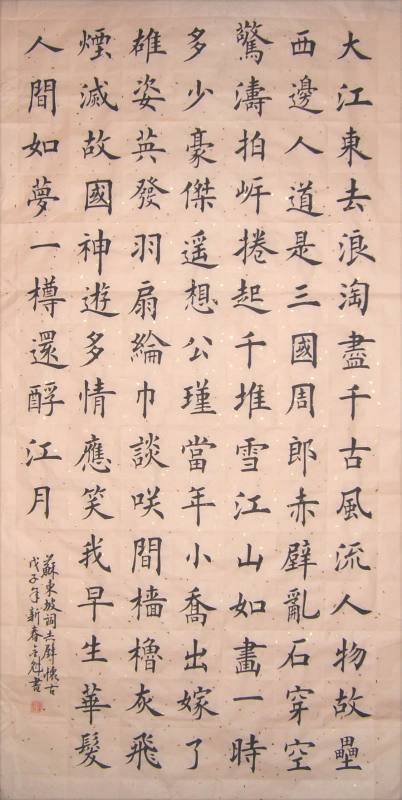 大江東去浪淘盡千古風流人物故壘
西邊人道是三國周郎赤壁亂石穿空
驚濤拍岸捲起千堆雪江山如畫一時
多少豪傑遥想公瑾當年小喬出嫁了
雄姿英發羽扇綸巾談咲間檣櫓灰飛
煙滅故國神遊多情應笑我早生華髮
人間如夢一樽還酹江月
蘇東坡詞赤壁懷古
戊子年新春書